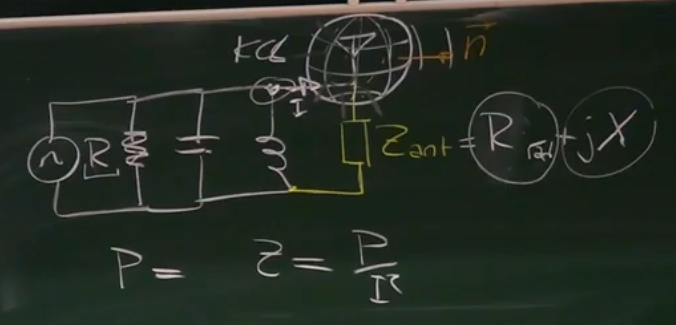 KCL
n
I
R
Zant = R rad + jX
P = Z = P/I²